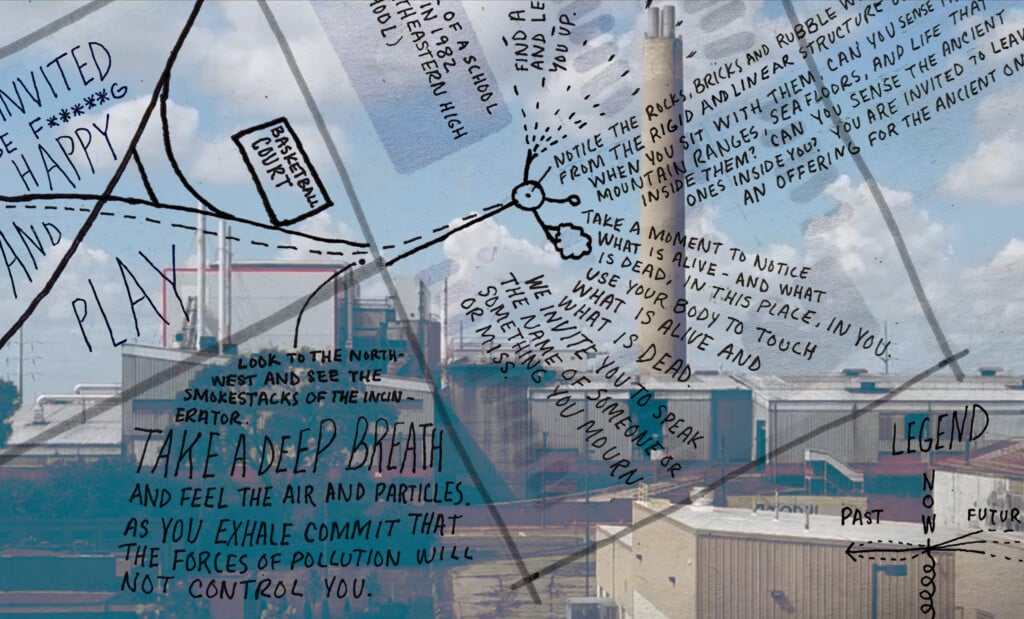 INVITED
BE F*****G
HAPPY
AND
PLAY
BASKETBALL
COURT
OF A SCHOOL
IN 1982
EASTERN HIGH
OOL)
FIND A
AND LE
YOU UP.
NOTICE THE ROCKS, BRICKS AND RUBBLE W
FROM THE RIGID AND LINEAR STRUCTURE O
WHEN YOU SIT WITH THEM, CAN YOU SENSE TH
MOUNTAIN RANGES, SEA FLOORS, AND LIFE THAT
INSIDE THEM? CAN YOU SENSE THE ANCIENT
ONES INSIDE YOU? YOU ARE INVITED TO LEAV
AN OFFERING FOR THE ANCIENT ON
TAKE A MOMENT TO NOTICE
WHAT IS ALIVE - AND WHAT
IS DEAD, IN THIS PLACE, IN YOU.
USE YOUR BODY TO TOUCH
WHAT IS ALIVE AND
WHAT IS DEAD.
WE INVITE YOU TO SPEAK
THE NAME OF SOMEONE OR
SOMETHING YOU MOURN
OR MISS.
LOOK TO THE NORTH-
WEST AND SEE THE
SMOKESTACKS OF THE INCIN-
ERATOR.
TAKE A DEEP BREATH
AND FEEL THE AIR AND PARTICLES.
AS YOU EXHALE COMMIT THAT
THE FORCES OF POLLUTION WILL
NOT CONTROL YOU.
LEGEND
NOW
PAST
FUTUR